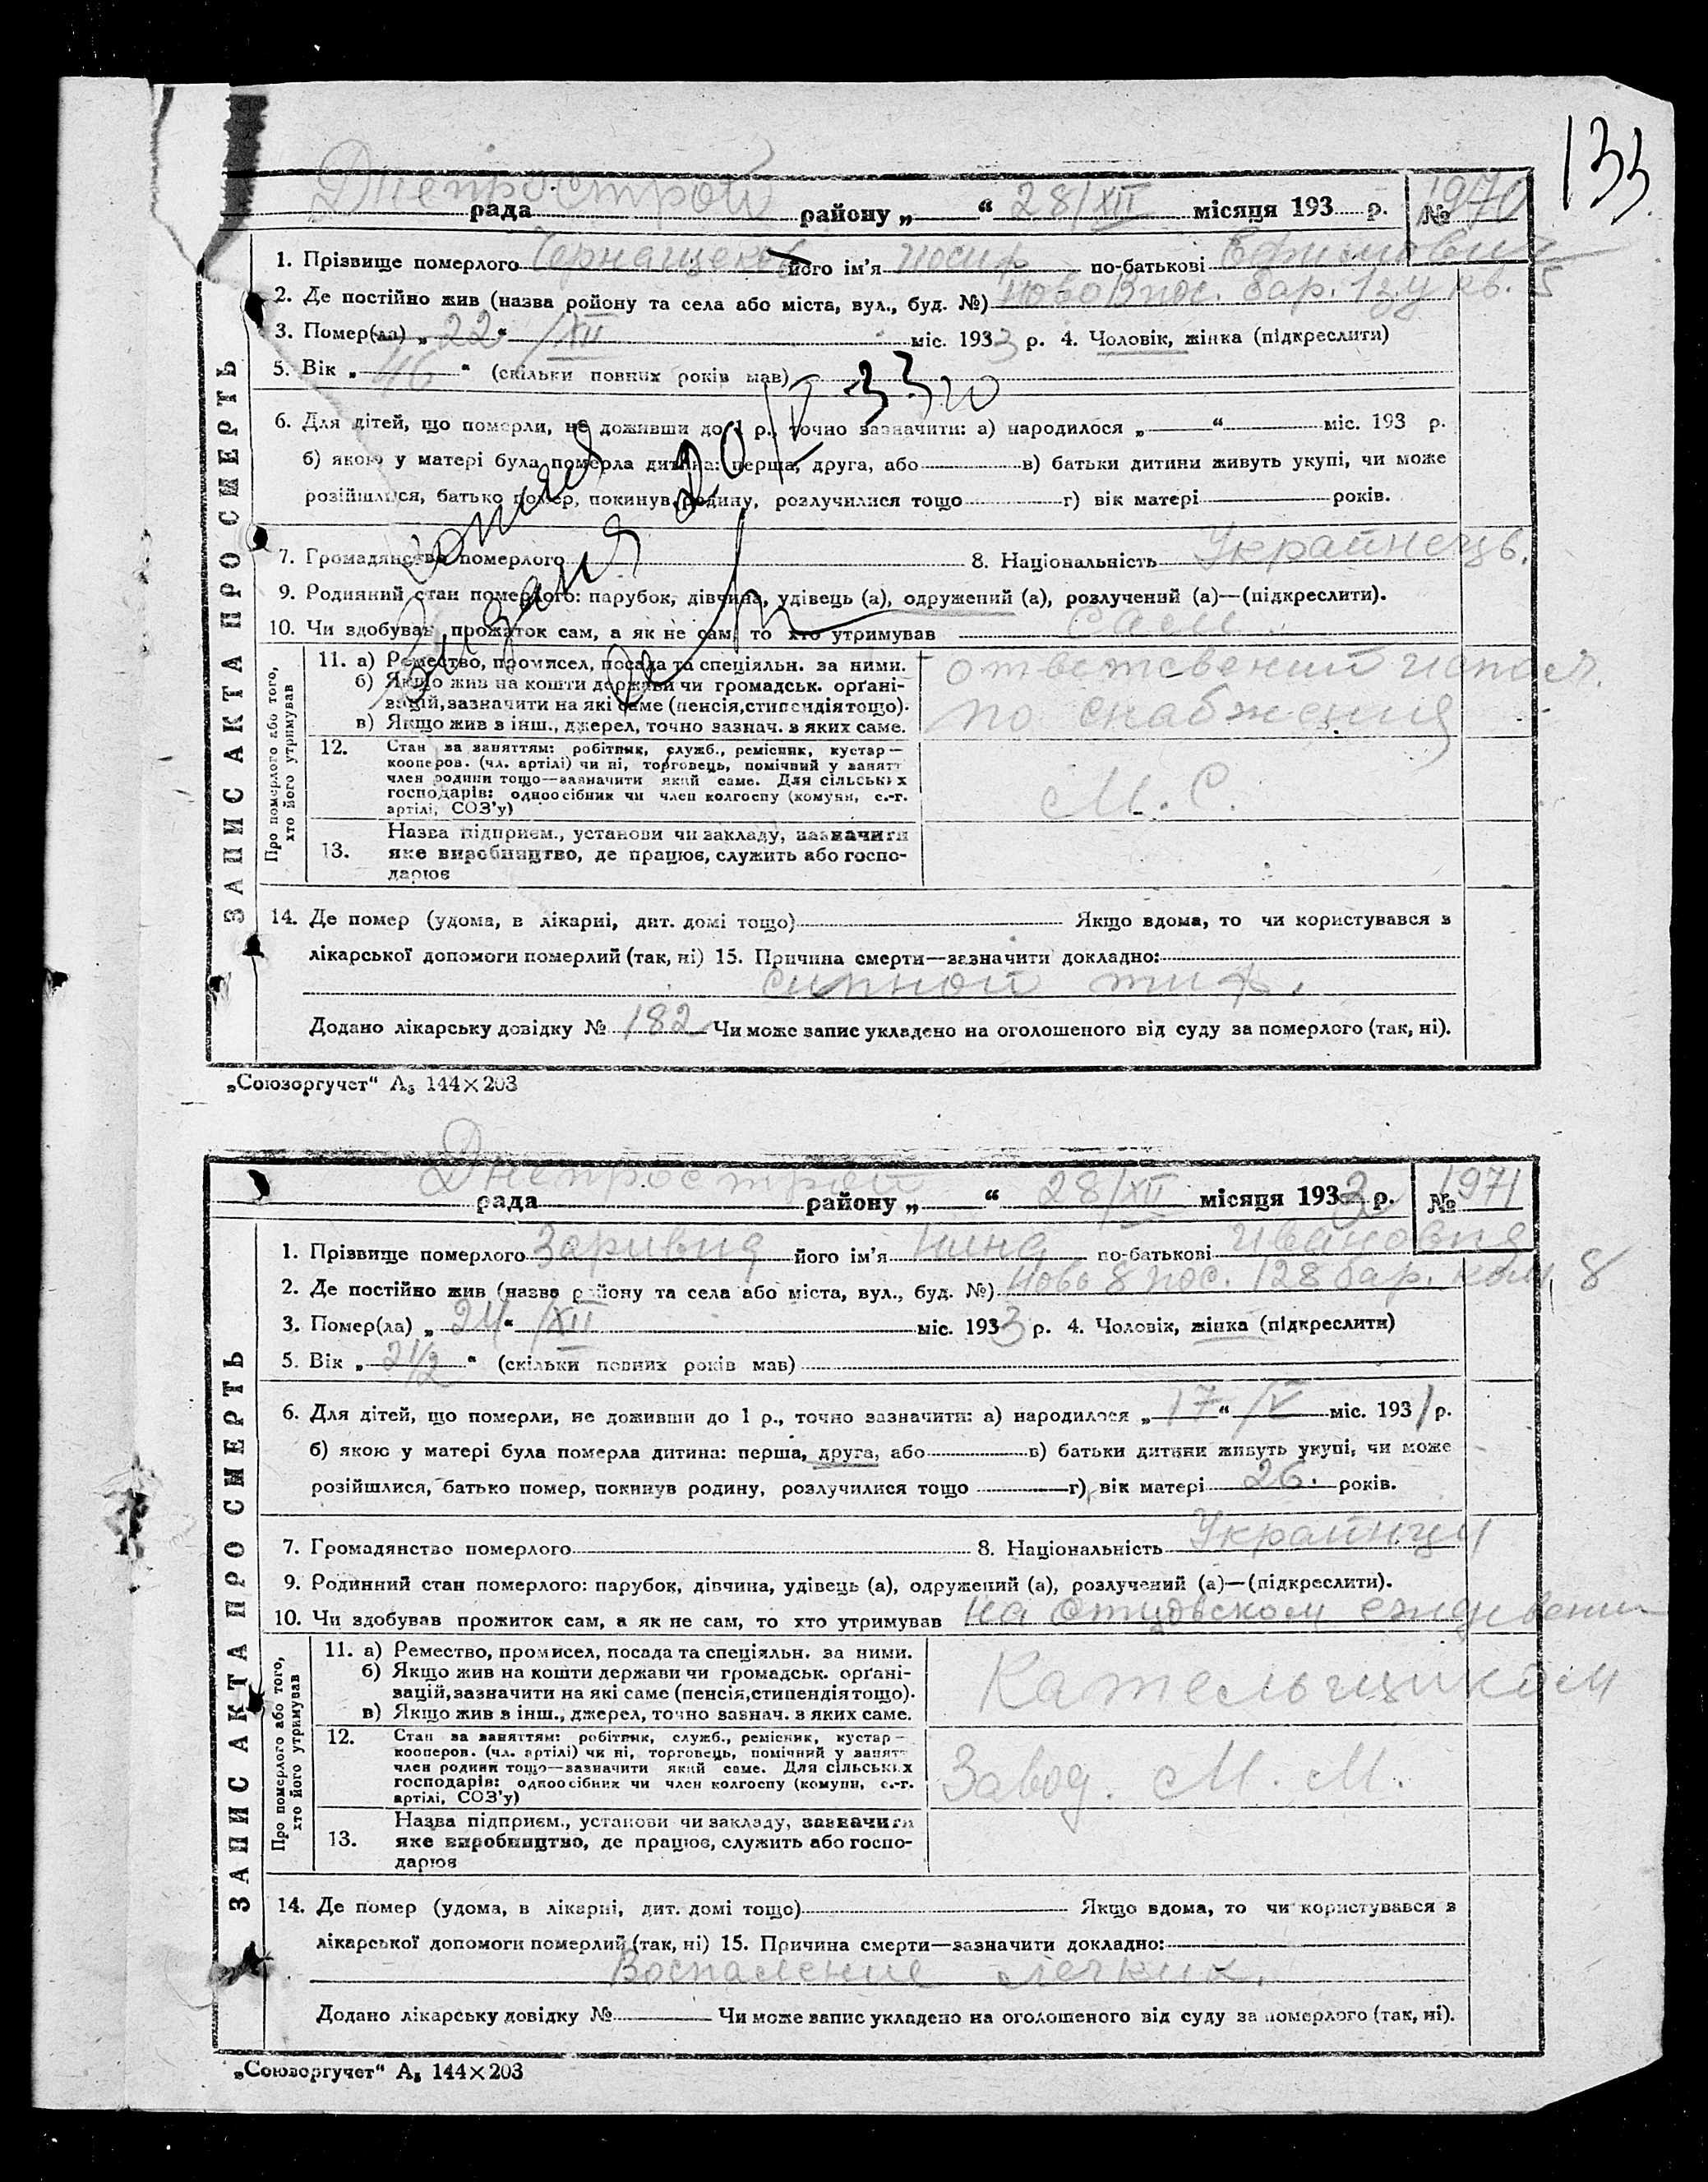 133
Днепрострой
рада районy „ “ 28/XII місяця 193 р. № 1970
ЗАПИС АКТА ПРО СМЕРТЬ
1. Прізвище померлого його ім'я Иосиф по-батькові Ефимович
2. Де постійно жив (назва району та села або міста, вул., буд. №) Ново В пос. бар. кв. 5
3. Помер(ла) „ 22 “ /XII міс. 1933 р. 4. Чоловік, жінка (підкреслити)
5. Вік „ 46 “ (скільки повних років мав)
6. Для дітей, що померли, не доживши до 1 р., точно зазначити: а) народилося „ “ міс. 193 р.
б) якою у матері була померла дитина: перша, друга, або в) батьки дитини живуть укупі, чи може
розійшлися, батько помер, покинув родину, розлучилися тощо г) вік матері років.
7. Громадянство померлого 8. Національність Украйнецъ.
9. Родинний стан померлого: парубок, дівчина, удівець (а), одружений (а), розлучений (а)—(підкреслити).
10. Чи здобував прожиток сам, а як не сам, то хто утримував сам.
Про померлого або того, хто його утримував
11. а) Ремество, промисел, посада та спеціяльн. за ними.
б) Якщо жив на кошти держави чи громадськ. орґані-
зацій, зазначити на які саме (пенсія, стипендія тощо).
в) Якщо жив в інш., джерел, точно зазнач. з яких саме.
по снабжения
12. Стан за заняттям: робітник, служб., ремісник, кустар—
кооперов. (чл. артілі) чи ні, торговець, помічний у занятт
член родини тощо—зазначити який саме. Для сільських
господарів: одноосібник чи член колгоспу (комуни, с.-г.
артілі, СОЗ'у)
М. С.
13. Назва підприєм., установи чи закладу, зазначити
яке виробництво, де працює, служить або госпо-
дарює
14. Де помер (удома, в лікарні, дит. домі тощо) Якщо вдома, то чи користувався з
лікарської допомоги померлий (так, ні) 15. Причина смерти—зазначити докладно:
сипной тиф.
Додано лікарську довідку № 182 Чи може запис укладено на оголошеного від суду за померлого (так, ні).
„Союзоргучет“ А₅ 144×203
Днепрострой
рада району „ “ 28/XII місяця 1933 р. № 1971
ЗАПИС АКТА ПРО СМЕРТЬ
1. Прізвище померлого Заривид його ім'я Нина по-батькові Ивановна
2. Де постійно жив (назва району та села або міста, вул., буд. №) Ново 8 пос. 128 бар. ком. 8
3. Помер(ла) „ 24 “ /XII міс. 1933 р. 4. Чоловік, жінка (підкреслити)
5. Вік „ 2 1/2 “ (скільки повних років мав)
6. Для дітей, що померли, не доживши до 1 р., точно зазначити: а) народилося „ 17 “ /V міс. 1931 р.
б) якою у матері була померла дитина: перша, друга, або в) батьки дитини живуть укупі, чи може
розійшлися, батько помер, покинув родину, розлучилися тощо г) вік матері 26. років.
7. Громадянство померлого 8. Національність
9. Родинний стан померлого: парубок, дівчина, удівець (а), одружений (а), розлучений (а)—(підкреслити).
10. Чи здобував прожиток сам, а як не сам, то хто утримував на отцовском
Про померлого або того, хто його утримував
11. а) Ремество, промисел, посада та спеціяльн. за ними.
б) Якщо жив на кошти держави чи громадськ. орґані-
зацій, зазначити на які саме (пенсія, стипендія тощо).
в) Якщо жив в інш., джерел, точно зазнач. з яких саме.
Кательщиком
12. Стан за заняттям: робітник, служб., ремісник, кустар—
кооперов. (чл. артілі) чи ні, торговець, помічний у занятт
член родини тощо—зазначити який саме. Для сільських
господарів: одноосібник чи член колгоспу (комуни, с.-г.
артілі, СОЗ'у)
Завод. М. М.
13. Назва підприєм., установи чи закладу, зазначити
яке виробництво, де працює, служить або госпо-
дарює
14. Де помер (удома, в лікарні, дит. домі тощо) Якщо вдома, то чи користувався з
лікарської допомоги померлий (так, ні) 15. Причина смерти—зазначити докладно:
Воспаление легких.
Додано лікарську довідку № Чи може запис укладено на оголошеного від суду за померлого (так, ні).
„Союзоргучет“ А₅ 144×203